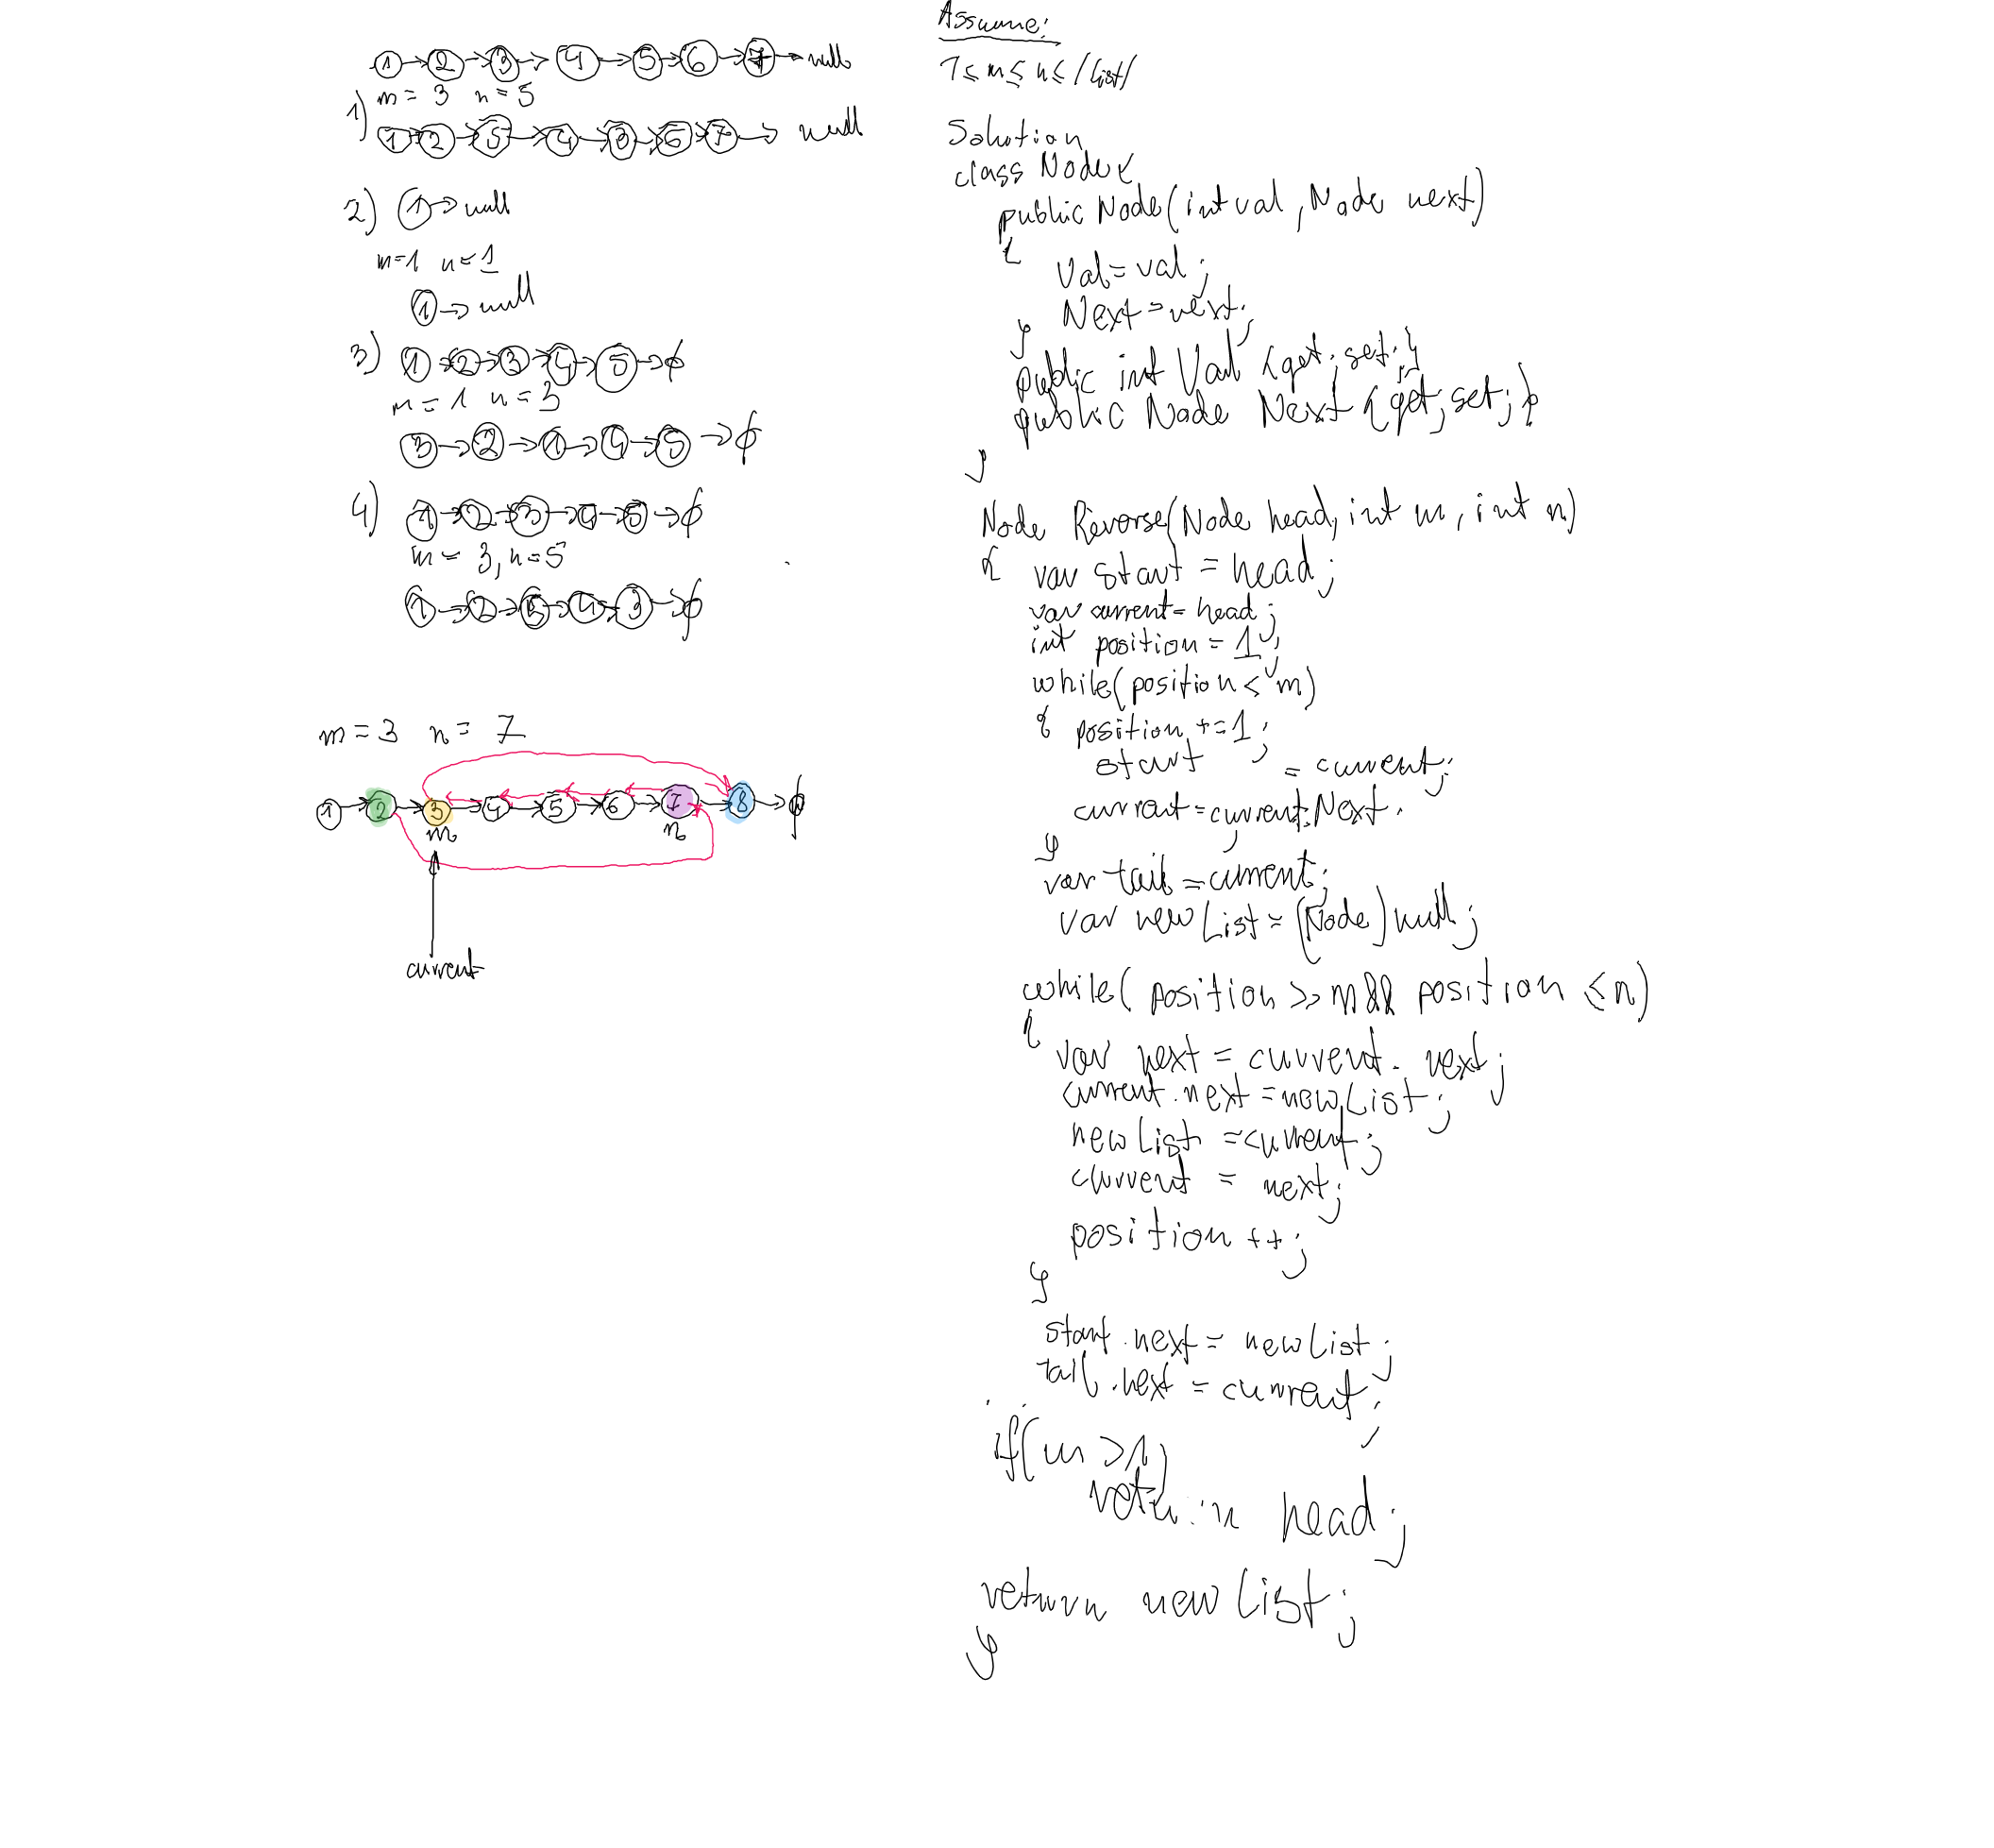 1 → 2 → 3 → 4 → 5 → 6 → 7 → null
m = 3 n = 5
1) 1 → 2 → 5 → 4 → 3 → 6 → 7 → null
2) 1 → null
m=1 n=1
1 → null
3) 1 → 2 → 3 → 4 → 5 → ϕ
m = 1 n = 3
3 → 2 → 1 → 4 → 5 → ϕ
4) 1 → 2 → 3 → 4 → 5 → ϕ
m = 3, n=5
1 → 2 → 5 → 4 → 3 → ϕ
m = 3 n = 7
1 → 2 → 3 → 4 → 5 → 6 → 7 → 8 → ϕ
m n
current
Assume:
1 ≤ m ≤ n ≤ /list/
Solution
class Node {
public Node(int val, Node next)
{
Val = val;
Next = next;
}
public int Val {get; set;}
public Node Next {get; set;}
}
Node Reverse(Node head, int m, int n)
{ var start = head;
var current = head;
int position = 1;
while(position < m)
{ position += 1;
start = current;
current = current.Next.
}
var tail = current;
var newList = (Node)null;
while( position >= m && position ≤ n)
{
var next = current. next;
current.next = newList;
newList = current;
current = next;
position ++;
}
start.next = newList;
tail.next = current;
if(m > 1)
return head;
return newList;
}